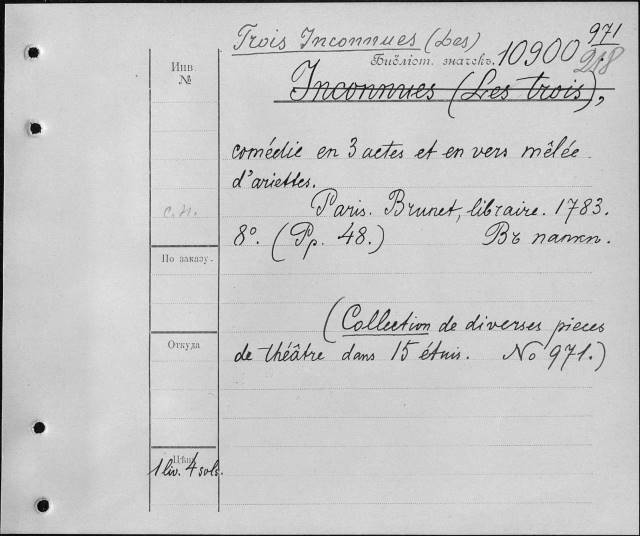 Trois Inconnues (Les)
971
218
Библіот. значекъ. 10900
Инв.
№
Inconnues (Les trois),
comédie en 3 actes et en vers mêlée
d'ariettes.
Paris. Brunet, libraire. 1783.
с.п.
8°. (Pp. 48.) Въ папкѣ.
По заказу.
(Collection de diverses pieces
Откуда
de théâtre dans 15 étuis. No 971.)
Цѣна
1 liv. 4 sols.